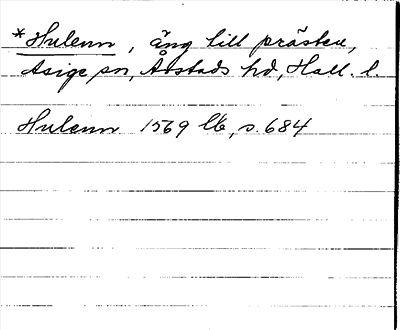 *Hulenn, äng till prästen,
Asige sn, Årstads hd, Hall. l.
Hulenn 1569 lb, s. 684